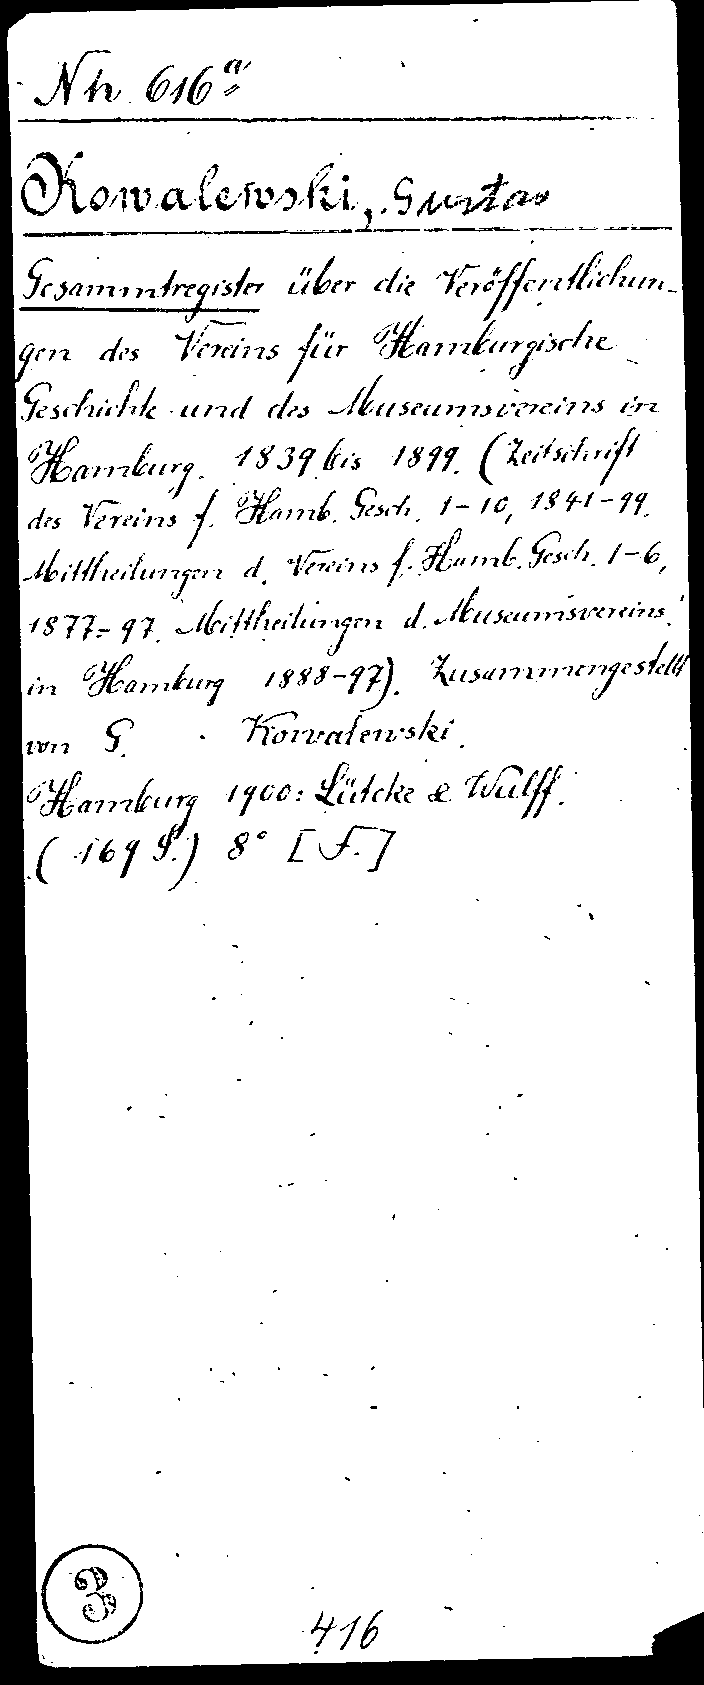 Nh 616 a
Kowalewski, Gustav
Gesammtregister über die Veröffentlichun-
gen des Vereins für Hamburgische
Geschichte und des Museumsvereins in
Hamburg. 1839 bis 1899. (Zeitschrift
des Vereins f. Hamb. Gesch. 1-10, 1841-99.
Mittheilungen d. Vereins f. Hamb. Gesch. 1-6,
1877-97. Mittheilungen d. Museumsvereins
in Hamburg 1888-97). Zusammengestellt
von G. Kowalewski.
Hamburg 1900: Lütcke & Wulff.
(169 S.) 8° [F.]
3
416